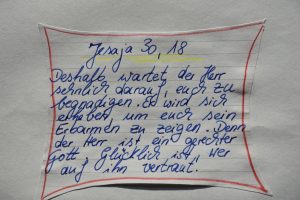 Jesaja 30, 18
Deshalb wartet der Herr
sehnlich darauf, euch zu
begnadigen. Er wird sich
erheben, um euch sein
Erbarmen zu zeigen. Denn
der Herr ist ein gerechter
Gott. Glücklich ist, wer
auf ihn vertraut.